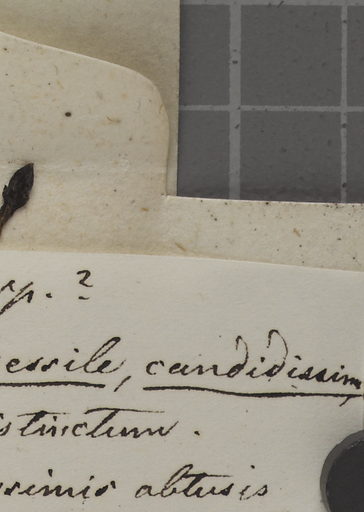 sp. ?
essile, candidissim
istinctum.
ssimis obtusis